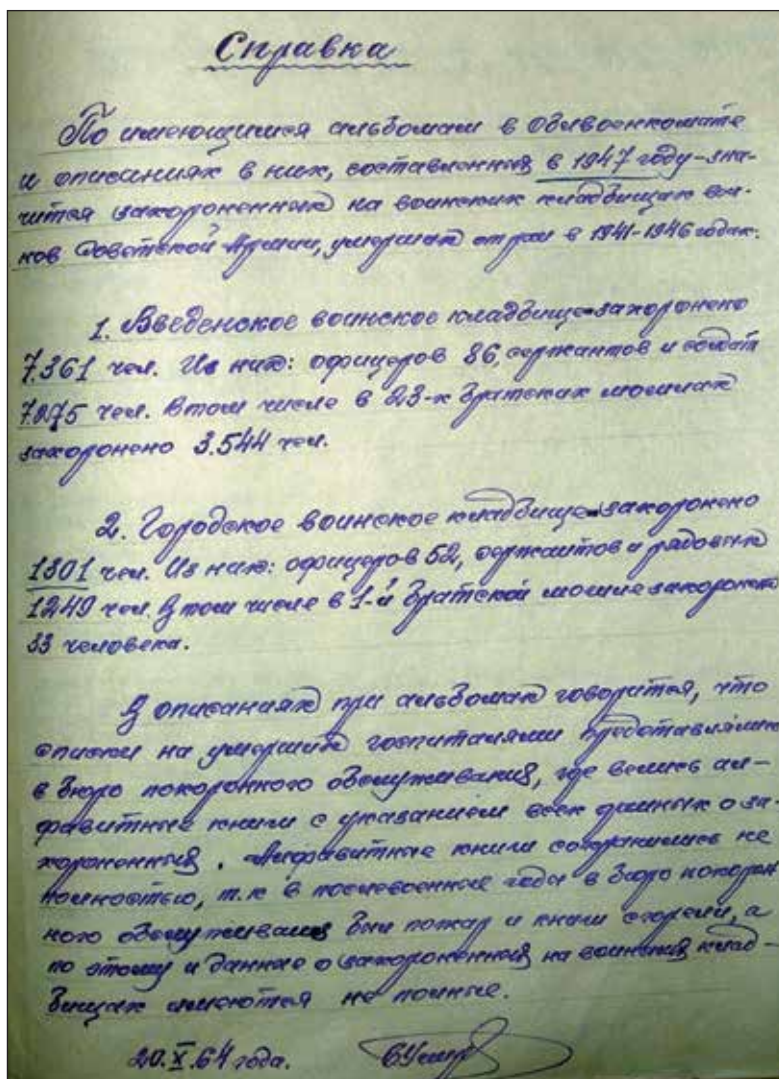 Справка
По имеющимся альбомам в Облвоенкомате
и описаниях в них, составленных в 1947 году - зна-
чится захороненных на воинских кладбищах вои-
нов Советской Армии, умерших от ран в 1941-1946 годах:
1. Введенское воинское кладбище - захоронено
7.361 чел. Из них: офицеров 86, сержантов и солдат
7.275 чел. В том числе в 23-х братских могилах
захоронено 3.544 чел.
2. Городское воинское кладбище - захоронено
1301 чел. Из них: офицеров 52, сержантов и рядовых
1249 чел. В том числе в 1-й братской могиле захоронено
33 человека.
В описаниях при альбомах говорится, что
списки на умерших госпиталями представлялись
в бюро похоронного обслуживания, где велись ал-
фавитные книги с указанием всех данных о за-
хороненных. Алфавитные книги сохранились не
полностью, т.к в послевоенные года в бюро похорон
ного обслуживания был пожар и книги сгорели, а
по этому и данные о захороненных на воинских клад-
бищах имеются не полные.
20.X.64 года.